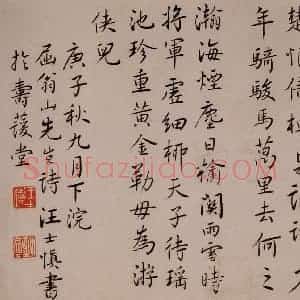 年騎駿馬萬里去何之
瀚海煙塵日榆關雨雪時
將軍虛細柳天子待瑤
池珍重黃金勒毋為游
俠兒
庚子秋九月下浣
屈翁山先生詩汪士慎書
於壽蘐堂
Shufaziliao.com